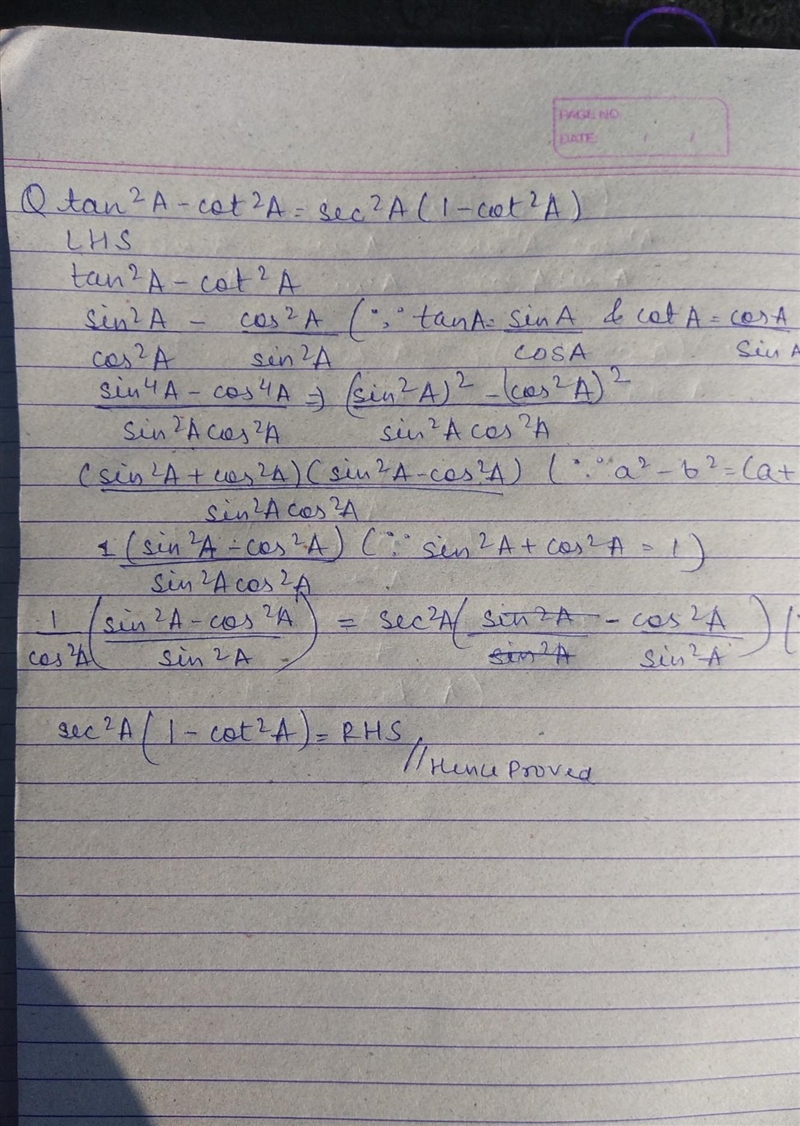 PAGE NO.
DATE / /
Q tan²A - cot²A = sec²A (1 - cot²A)
LHS
tan²A - cot²A
sin²A/cos²A - cos²A/sin²A (∵ tanA = sinA/cosA & cot A = cosA/sinA
sin⁴A - cos⁴A/sin²A cos²A ⇒ (sin²A)² - (cos²A)²/sin²A cos²A
(sin²A + cos²A) (sin²A - cos²A)/sin²A cos²A (∵ a² - b² = (a+
1 (sin²A - cos²A)/sin²A cos²A (∵ sin²A + cos²A = 1)
1/cos²A (sin²A - cos²A/sin²A) = sec²A (sin²A/sin²A - cos²A/sin²A) (∵
sec²A (1 - cot²A) = RHS
// Hence Proved